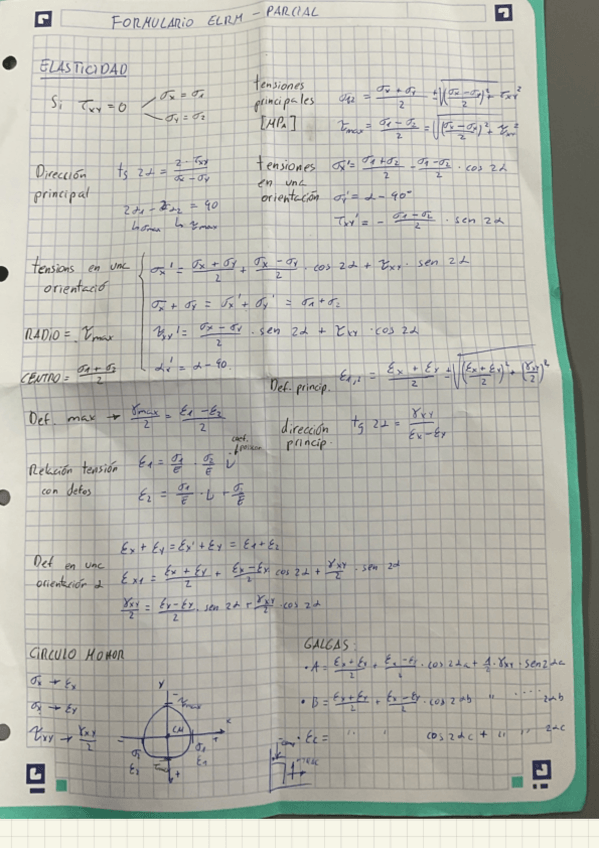 FORMULARIO ELRM - PARCIAL
ELASTICIDAD
Si τxy = 0
σx = σ1
σy = σ2
tensiones
principales
[MPa]
σ1,2 = (σx + σy)/2 ± √((σx - σy)/2)² + τxy²
τmax = (σ1 - σ2)/2 = √((σx - σy)/2)² + τxy²
Dirección
principal
tg 2α = 2·τxy/(σx - σy)
tensiones
en una
orientación
σx' = (σ1+σ2)/2 - (σ1-σ2)/2 · cos 2α
σy' = α - 90°
τxy' = - (σ1-σ2)/2 · sen 2α
tensions en una
orientació
σx' = (σx + σy)/2 + (σx - σy)/2 · cos 2α + τxy · sen 2α
σx + σy = σx' + σy' = σ1 + σ2
τxy' = (σx - σy)/2 · sen 2α + τxy · cos 2α
RADIO = τmax
CENTRO = (σ1 + σ2)/2
αy' = α - 90
Def. princip.
ε1,2 = (εx + εy)/2 ± √((εx + εy)/2)² + (γxy/2)²
Def. max → γmax/2 = (ε1 - ε2)/2
dirección
princip.
tg 2α = γxy/(εx - εy)
Relación tensión
con defos
ε1 = σ1/E · σ2/E ν
ε2 = σ1/E · ν + σ2/E
εx + εy = εx' + εy = ε1 + ε2
Def en una
orientación α
εx1 = (εx + εy)/2 + (εx - εy)/2 cos 2α + γxy/2 · sen 2α
γxy/2 = (εx - εy)/2 · sen 2α + γxy/2 · cos 2α
CIRCULO MOHOR
σx → εx
σx → εy
τxy → γxy/2
GALGAS:
· A = (εx + εy)/2 + (εx - εy)/2 · cos 2αa + 1/2 · γxy · sen 2αa
· B = (εx + εy)/2 + (εx - εy)/2 · cos 2αb " ..... 2αb
· εc = " " cos 2αc + " " 2αc